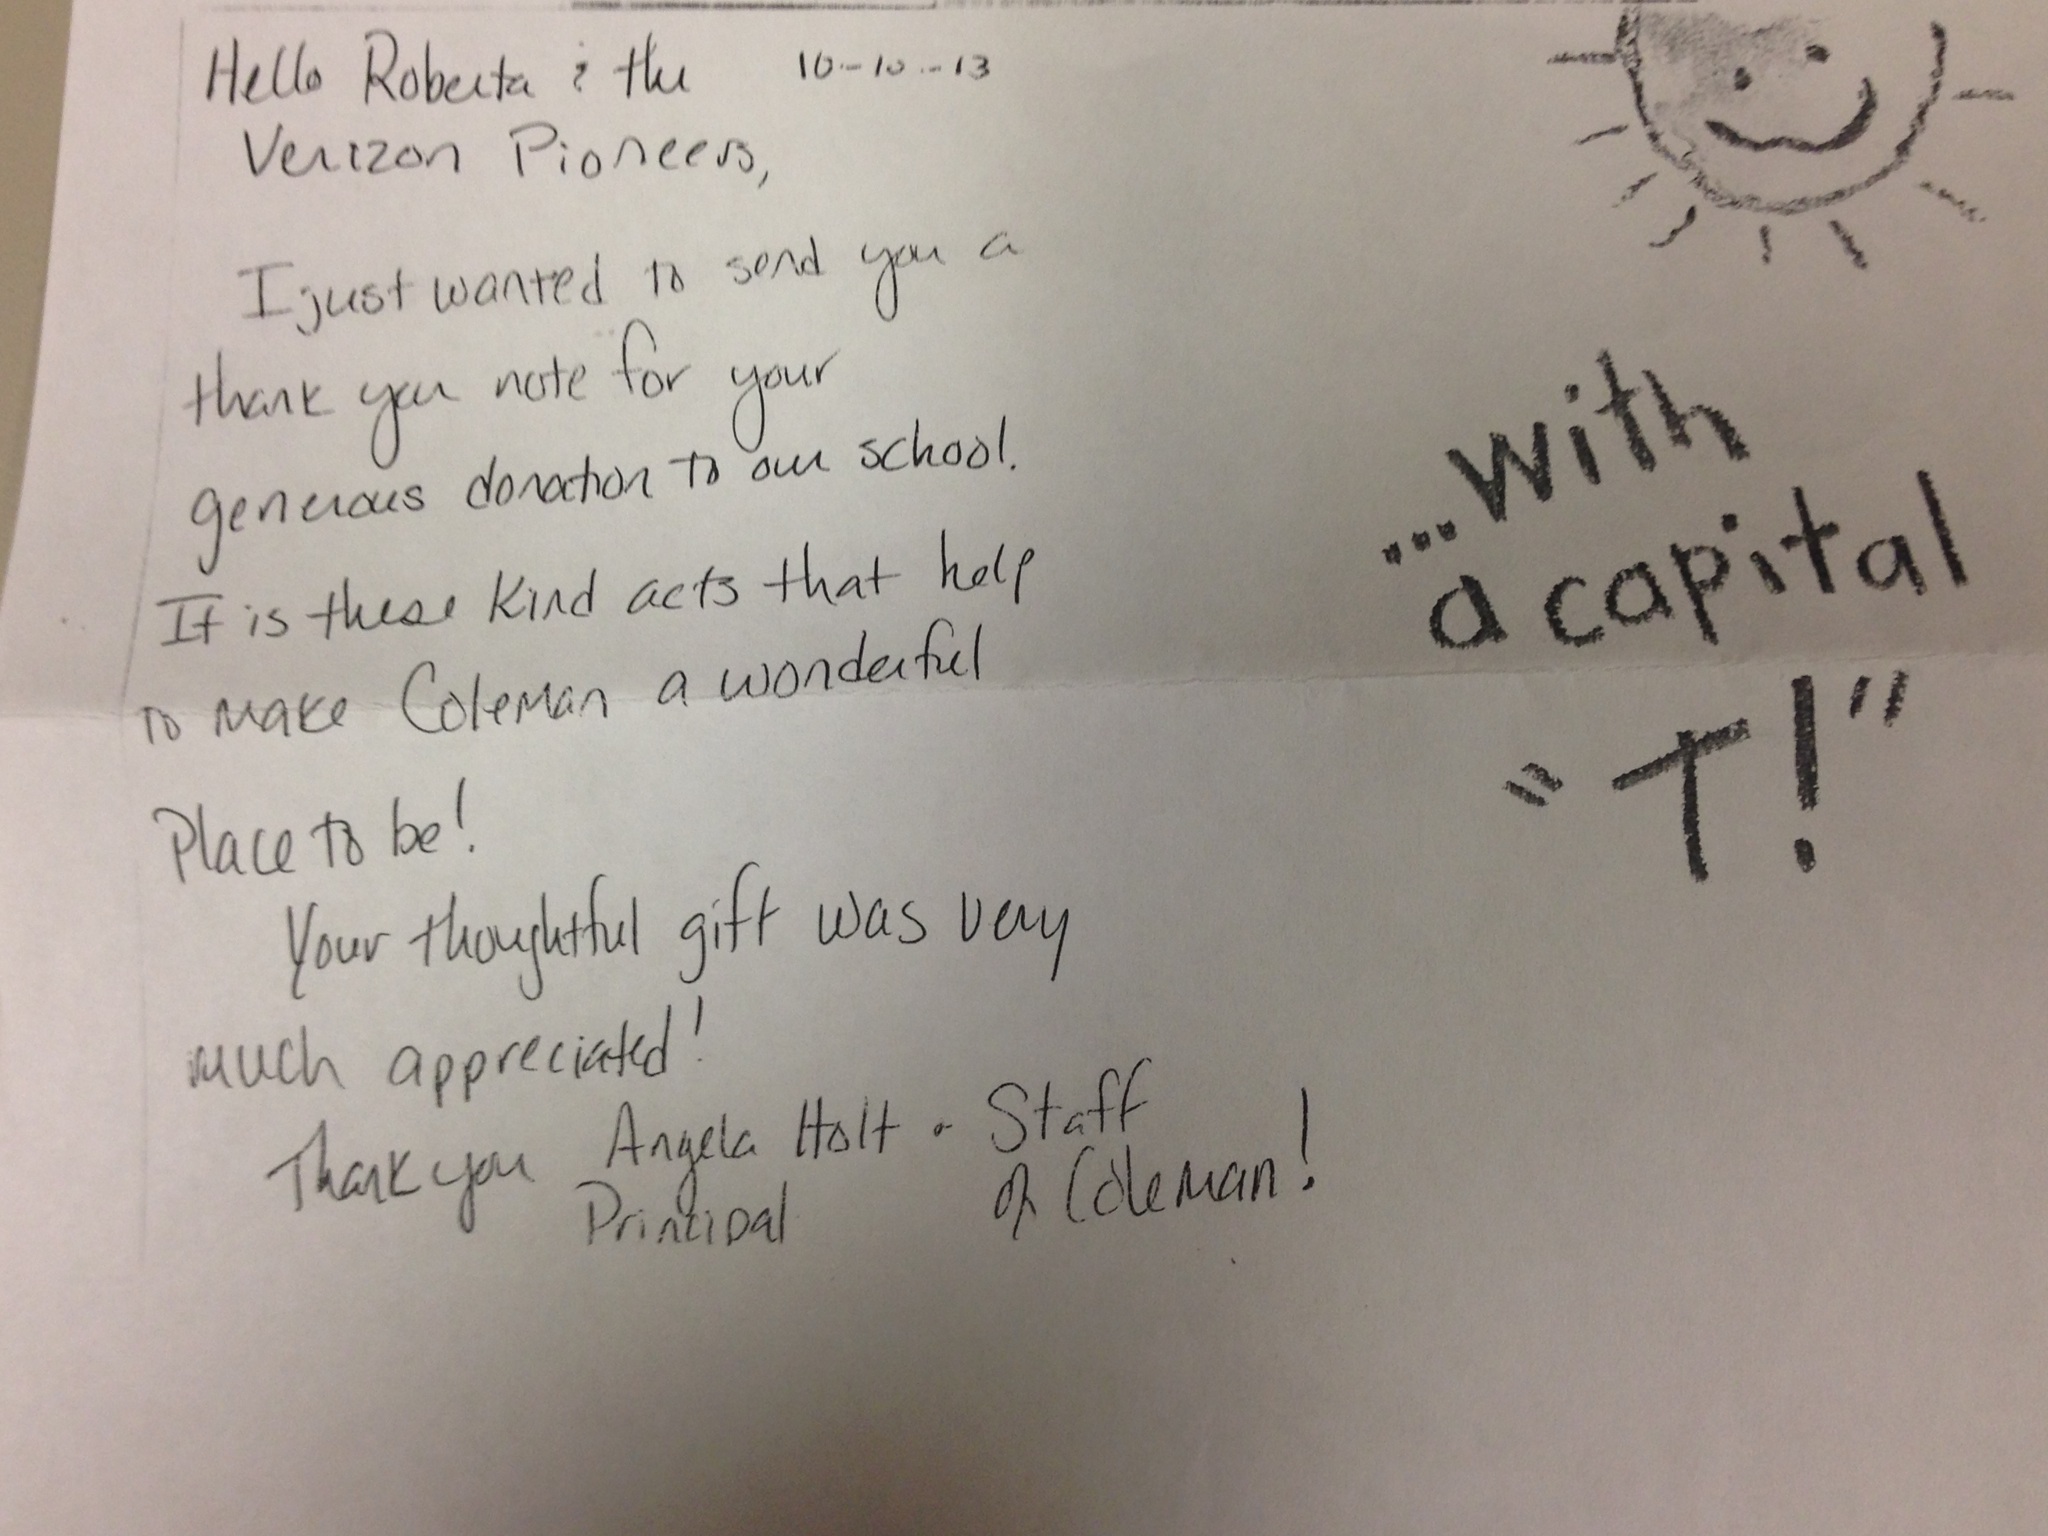 Hello Roberta & the 10-10-13
Verizon Pioneers,
I just wanted to send you a
thank you note for your
generous donation to our school.
It is these kind acts that help
to make Coleman a wonderful
Place to be!
Your thoughtful gift was very
much appreciated!
Thank you Angela Holt & Staff
Principal of Coleman!
...with
a capital
"T!"